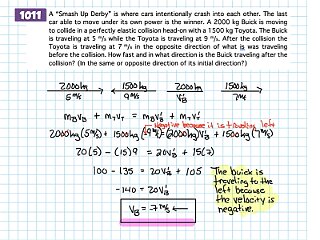 1011
A "Smash Up Derby" is where cars intentionally crash into each other. The last
car able to move under its own power is the winner. A 2000 kg Buick is moving
to collide in a perfectly elastic collision head-on with a 1500 kg Toyota. The Buick
is traveling at 5 m/s while the Toyota is traveling at 9 m/s. After the collision the
Toyota is traveling at 7 m/s in the opposite direction of what is was traveling
before the collision. How fast and in what direction is the Buick traveling after the
collision? (In the same or opposite direction of its initial direction?)
2000kg 1500kg 2000kg 1500kg
5 m/s 9 m/s V'B 7m/s
mBVB + mTVT = mBV'B + mTV'T
Negative because it is traveling left
2000kg(5 m/s) + 1500kg(-9 m/s) = (2000kg)V'B + 1500kg(7 m/s)
20(5) - (15)9 = 20V'B + 15(7)
100 - 135 = 20V'B + 105
-140 = 20V'B
V'B = -7 m/s ←
The buick is
traveling to the
left because
the velocity is
negative.